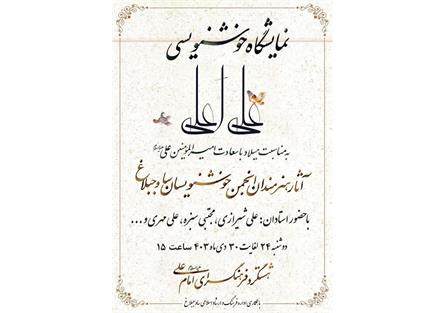 نمایشگاه خوشنویسی
علی اعلی
به مناسبت میلاد با سعادت امیرالمؤمنین علی
آثار هنرمندان انجمن خوشنویسان ساوجبلاغ
با حضور استادان: علی شیرازی، مجتبی سبزه، علی مهری و ...
دوشنبه ۲۴ لغایت ۳۰ دی ماه ۴۰۳ ساعت ۱۵
هشتگرد فرهنگسرای امام علی
با همکاری اداره فرهنگ و ارشاد اسلامی ساوجبلاغ